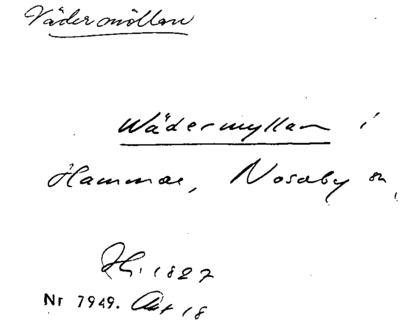 Vädermöllan
Wädermyllan i
Hammar, Nosaby sn,
1827
Nr 7949. Akt 18